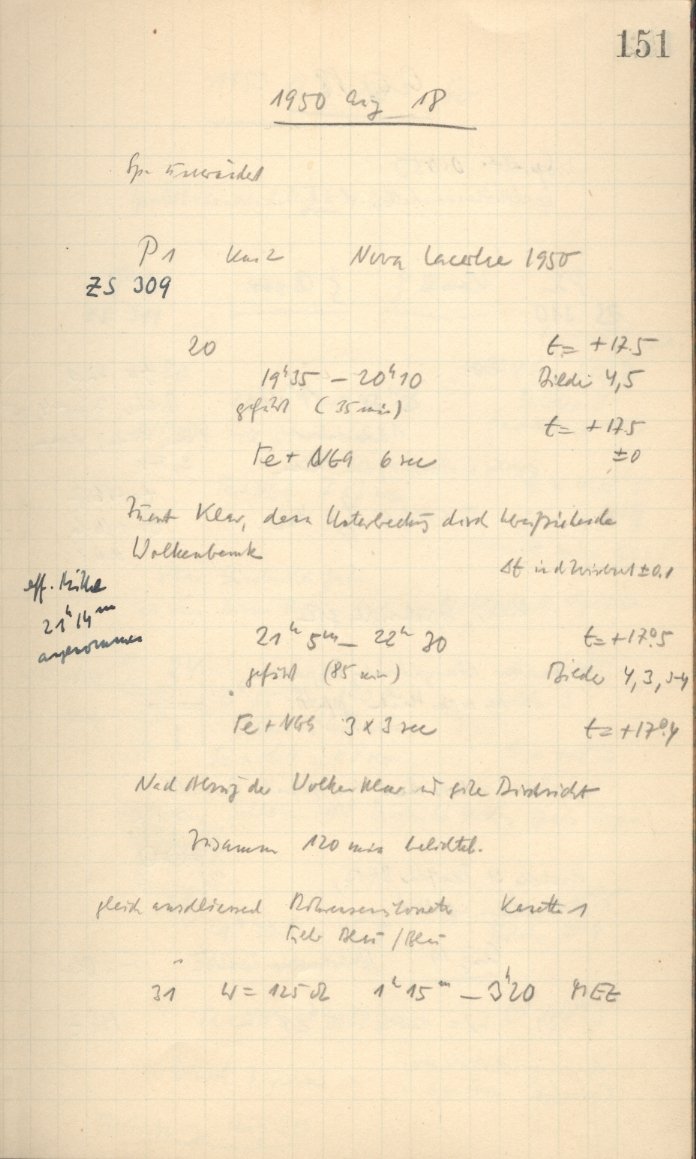 151
1950 Aug 18
P1 Kas 2 Nova Lacertae 1950
ZS 309
20 t = +17.5
19ʰ35 – 20ʰ10 Bilder 4,5
geführt (35 min) t = +17.5
Fe + NGG 6 sec ±0
Zuerst Klar, dann Unterbrechung durch
Wolkenbank
Δt in d ±0.1
eff. Mitte
21ʰ14ᵐ
angenommen
21ʰ 5ᵐ – 22ʰ 30 t = +17°.5
geführt (85 min) Bilder 4, 3, 3-4
Fe + NGG 3 x 3 sec t = +17°.4
Nach Abzug der Wolken klar und gute Durchsicht
Zusammen 120 min belichtet.
gleich anschliessend Röhrensensitometer Kasette 1
Blau / Blau
31 W = 125 Ω 1ʰ 15ᵐ – 3ʰ20 MEZ